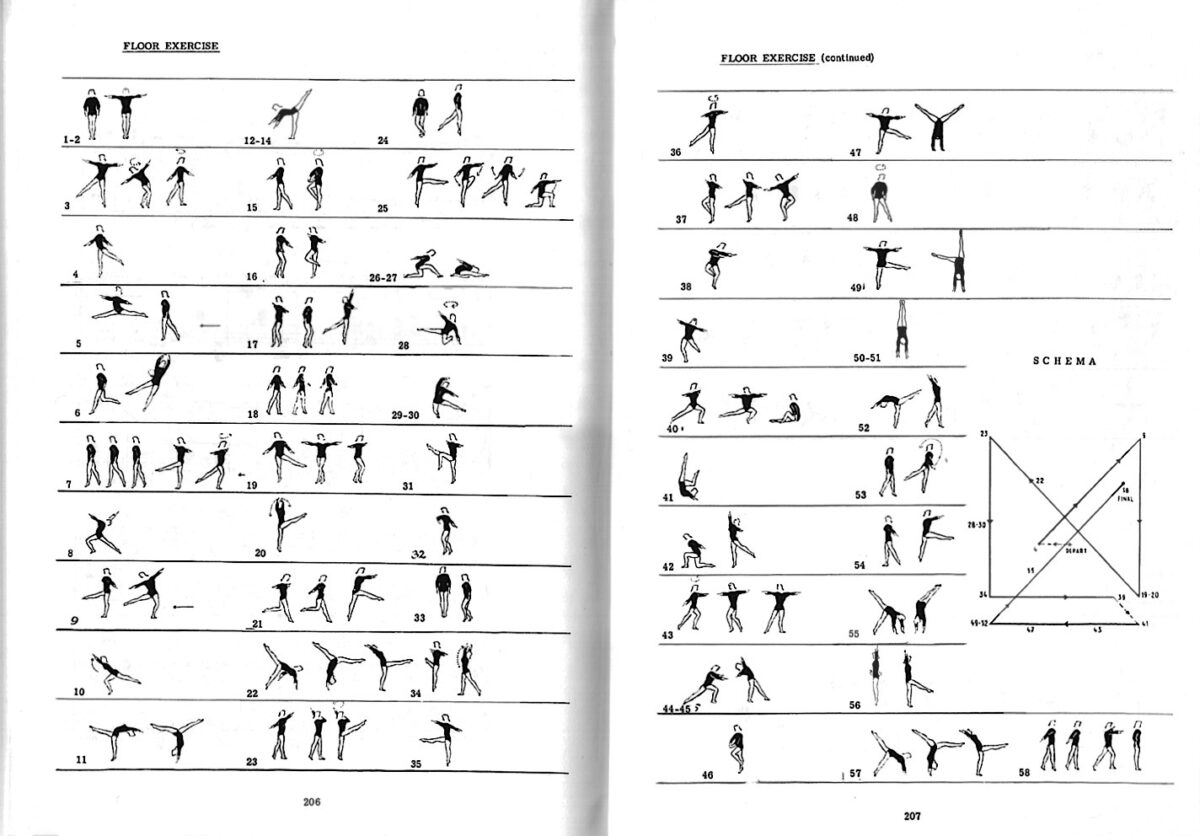 FLOOR EXERCISE
1-2
12-14
24
3
15
25
4
16
26-27
5
17
28
6
18
29-30
7
19
31
8
20
32
9
21
33
10
22
34
11
23
35
206
FLOOR EXERCISE (continued)
36
47
37
48
38
49
39
50-51
40
52
41
53
42
54
43
55
44-45
56
46
57
58
SCHEMA
23
22
58
FINAL
28-30
DEPART
34
39
19-20
49-52
47
43
41
207